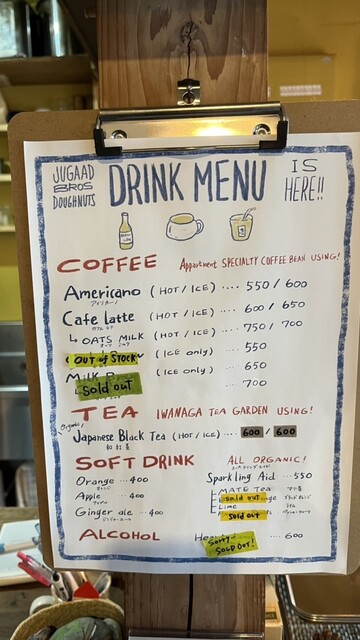 JUGAAD
BROS
DOUGHNUTS
DRINK MENU
IS
HERE!!
COFFEE Appartment SPECIALTY COFFEE BEAN USING!
Americano (HOT / ICE) .... 550 / 600
アメリカーノ
Cafe latte (HOT / ICE) .... 600 / 650
カフェラテ
↳ OATS MILK (HOT / ICE) .... 750 / 700
OUT OF STOCK (ICE only) ... 550
(ICE only) .... 650
Sold out ... 700
TEA IWANAGA TEA GARDEN USING!
Organic!
Japanese Black Tea (HOT / ICE) ... 600 / 600
和紅茶
SOFT DRINK ALL ORGANIC!
Orange ... 400
Apple ... 400
Ginger ale ... 400
Sparkling Aid ... 550
MATE Tea
sold out
Lime
sold out
ALCOHOL
Sorry SOLD OUT! ... 600